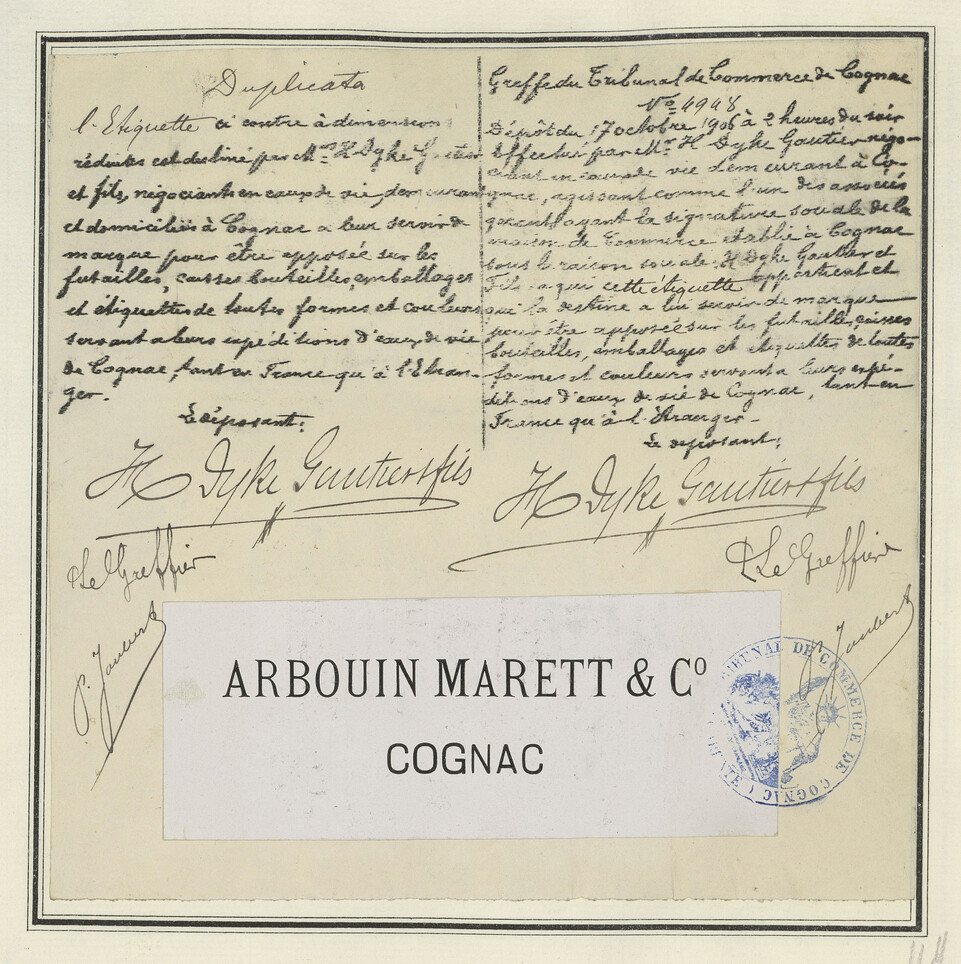 Duplicata
l'Etiquette ci contre à dimensions
réduites est destiné par Mrs H Dyke Gautier
et fils, négociants en eaux de vie, demeurant
et domiciliés à Cognac a leur servir de
marque pour être apposée sur les
futailles, caisses bouteilles, emballages
et étiquettes de toutes formes et couleurs
servant a leurs expéditions d'eaux de vie
de Cognac, tant en France qu'à l'Etran-
ger.
Le déposant:
H Dyke Gautier & fils
Le Greffier
P. Jaubert
Greffe du Tribunal de Commerce de Cognac
No 4948
Dépôt du 17 octobre 1906 à 2 heures du soir
Effectué par Mr H Dyke Gautier négo-
ciant en eaux de vie demeurant à Co-
gnac, agissant comme l'un des associés
gérant ayant la signature sociale de la
maison de Commerce établie à Cognac
sous la raison sociale H Dyke Gautier et
Fils a qui cette étiquette appartient et
qui la destine a lui servir de marque
pour être apposée sur les futailles, caisses
bouteilles, emballages et etiquettes de toutes
formes et couleurs servant a leurs expé-
ditions d'eaux de vie de Cognac, tant en
France qu'à l'Etranger.
Le deposant:
H Dyke Gautier & fils
Le Greffier
P. Jaubert
ARBOUIN MARETT & Cº
COGNAC
TRIBUNAL DE COMMERCE DE COGNAC